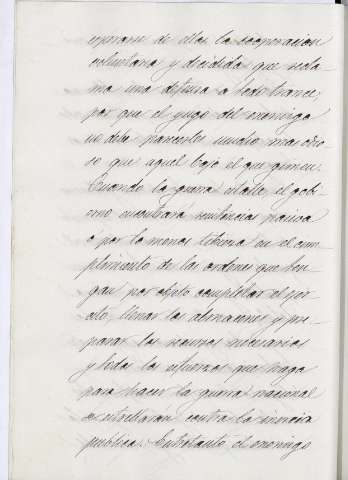 esperarse de ellas la cooperacion
voluntaria y decidida que recla-
ma una defensa a todo trance,
por que el yugo del enemigo
no debe parecerles mucho mas odio-
so que aquel bajo el que gimen.
Cuando la guerra estalle, el gobi-
erno encontrará resistencias pasiva
ó por lo menos letargo en el cum-
plimiento de las ordenes que ten-
gan por objeto completar el ejer-
cito, llenar los almacenes y pre-
parar los recursos necesarios
y todos los esfuerzos que haga
para hacer la guerra nacional
se estrellaran contra la inercia
publica. Entretanto el enemigo